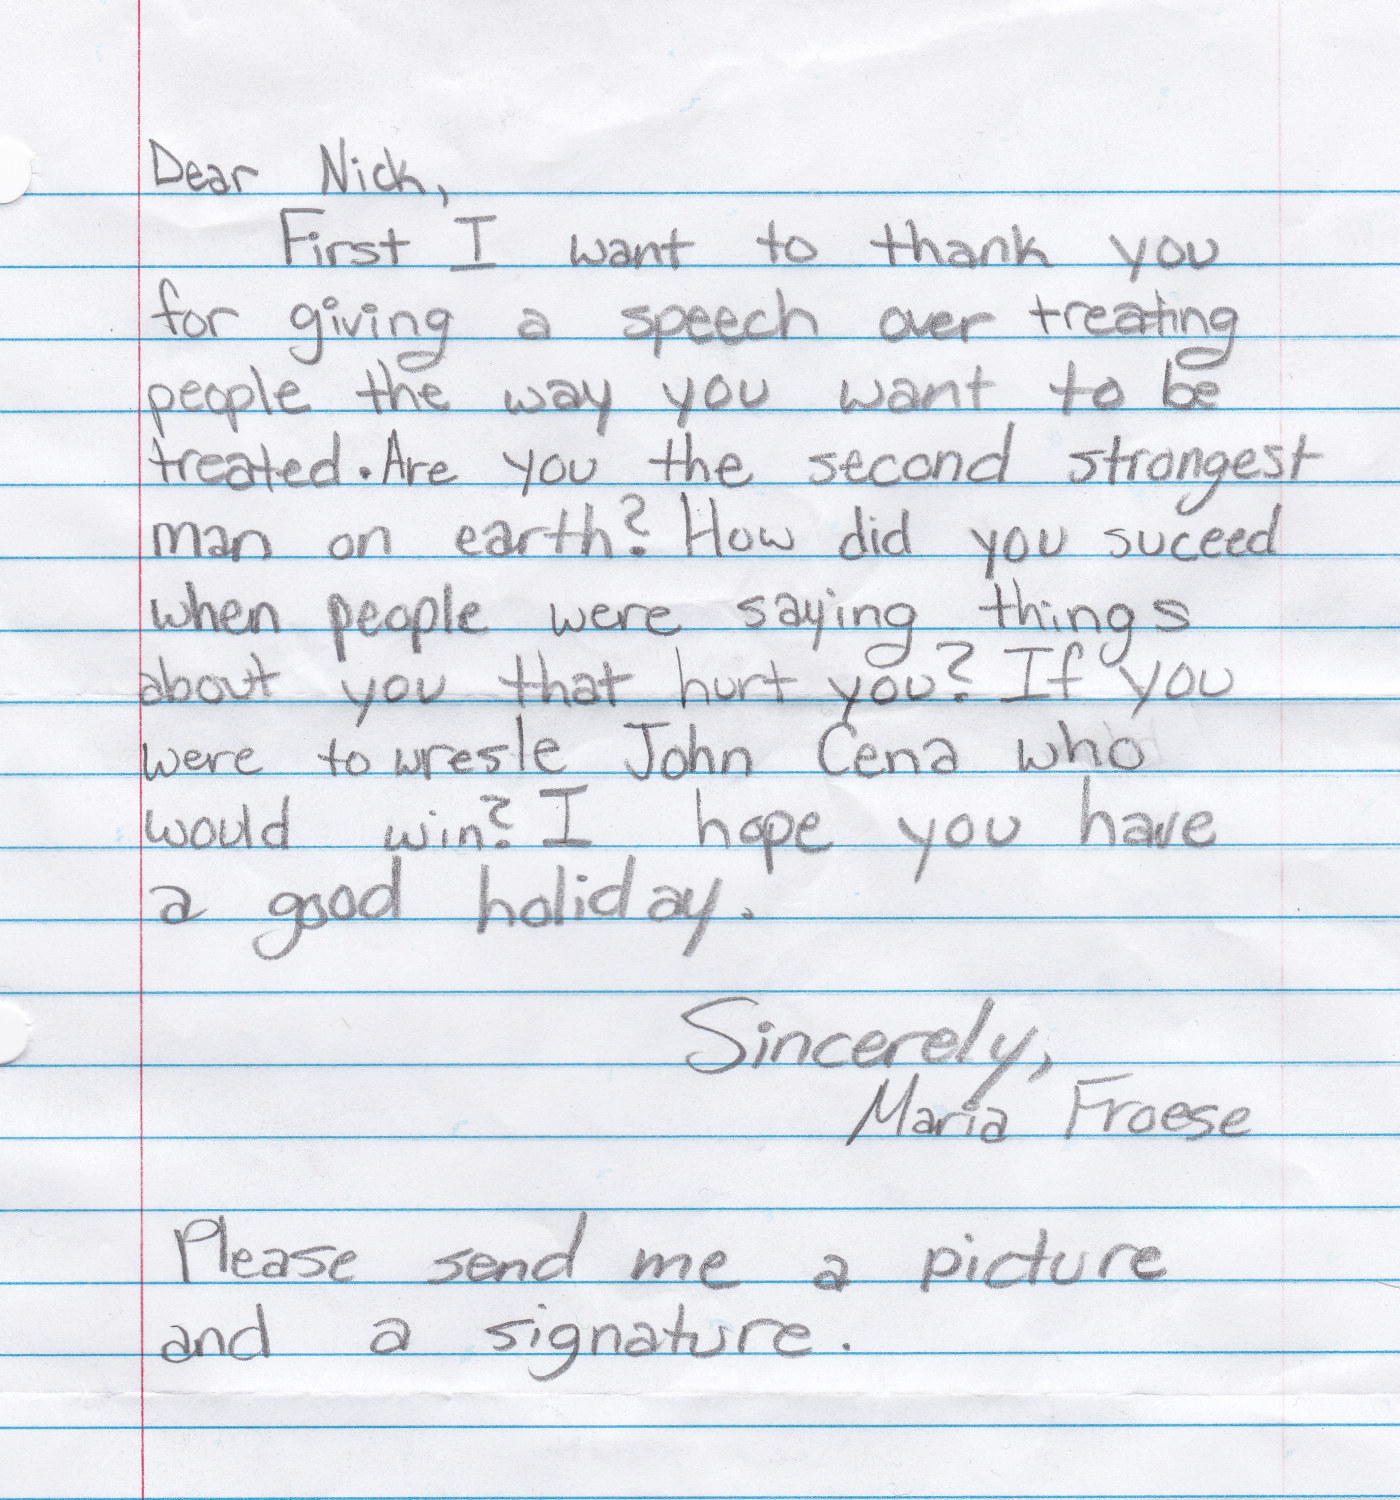 Dear Nick,
First I want to thank you
for giving a speech over treating
people the way you want to be
treated. Are you the second strongest
man on earth? How did you suceed
when people were saying things
about you that hurt you? If you
were to wresle John Cena who
would win? I hope you have
a good holiday.
Sincerely,
Maria Froese
Please send me a picture
and a signature.